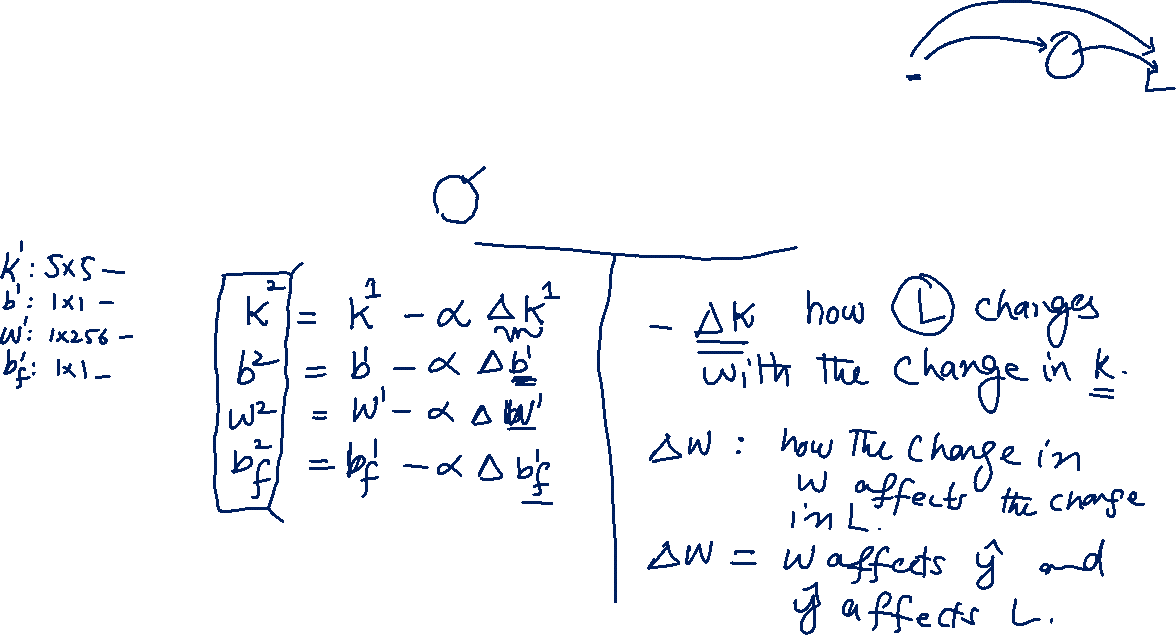 L
k¹: 5x5 –
b¹: 1x1 –
w¹: 1x256 –
b¹f: 1x1 –
k² = k¹ - α Δk¹
b² = b¹ - α Δb¹
w² = w¹ - α Δw¹
b²f = b¹f - α Δb¹f
- ΔK how L changes
with the change in k.
Δw : how the change in
w affects the change
in L.
Δw = w affects ŷ and
ŷ affects L.